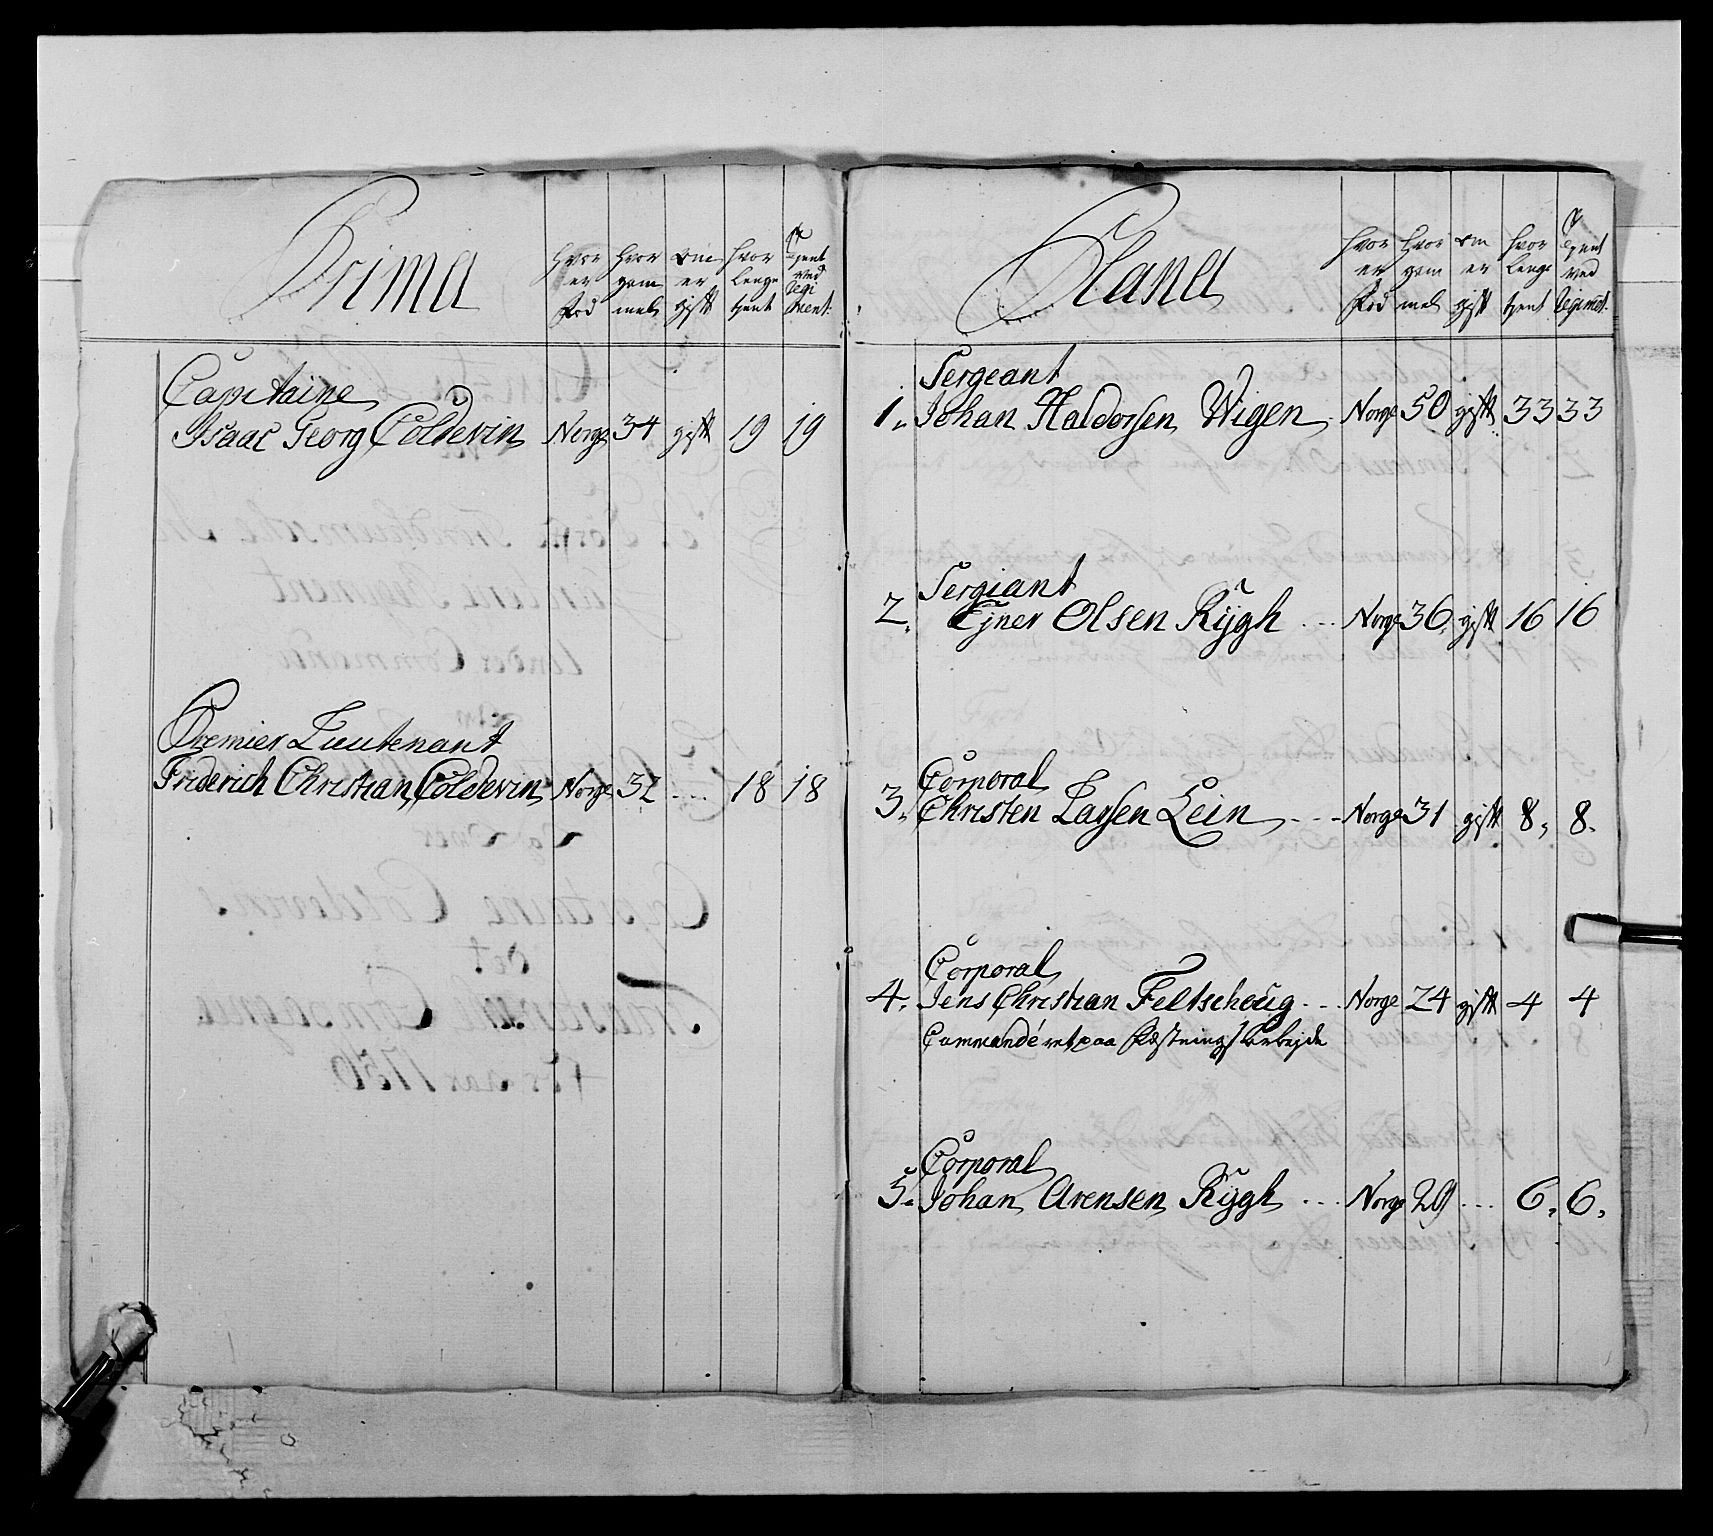 Prima
Hvor er fød
Hvor gammel
om er gift
hvor lenge tjent
Tjent ved Regiment
Capitaine
Isaac Georg Coldevin Norge 34 gift 19 19
Premier Lieutenant
Friderich Christian Coldevin Norge 32 .... 18 18
Plana
Hvor er fød
hvor gammel
om er gift
hvor lenge tjent
Tjent ved Regimet
Sergeant
1. Johan Haldorsen Wigen Norge 50 gift 33 33
Sergiant
2. Ejner Olsen Rÿgh ... Norge 36 gift 16 16
Corporal
3. Christen Larsen Lein ... Norge 31 gift 8, 8.
Corporal
4. Jens Christian Feltscheug ... Norge 24 gift 4 4
Commandéret paa Fæstnings Arbejde
Corporal
5. Johan Arensen Rÿgh ... Norge 29 ... 6, 6,